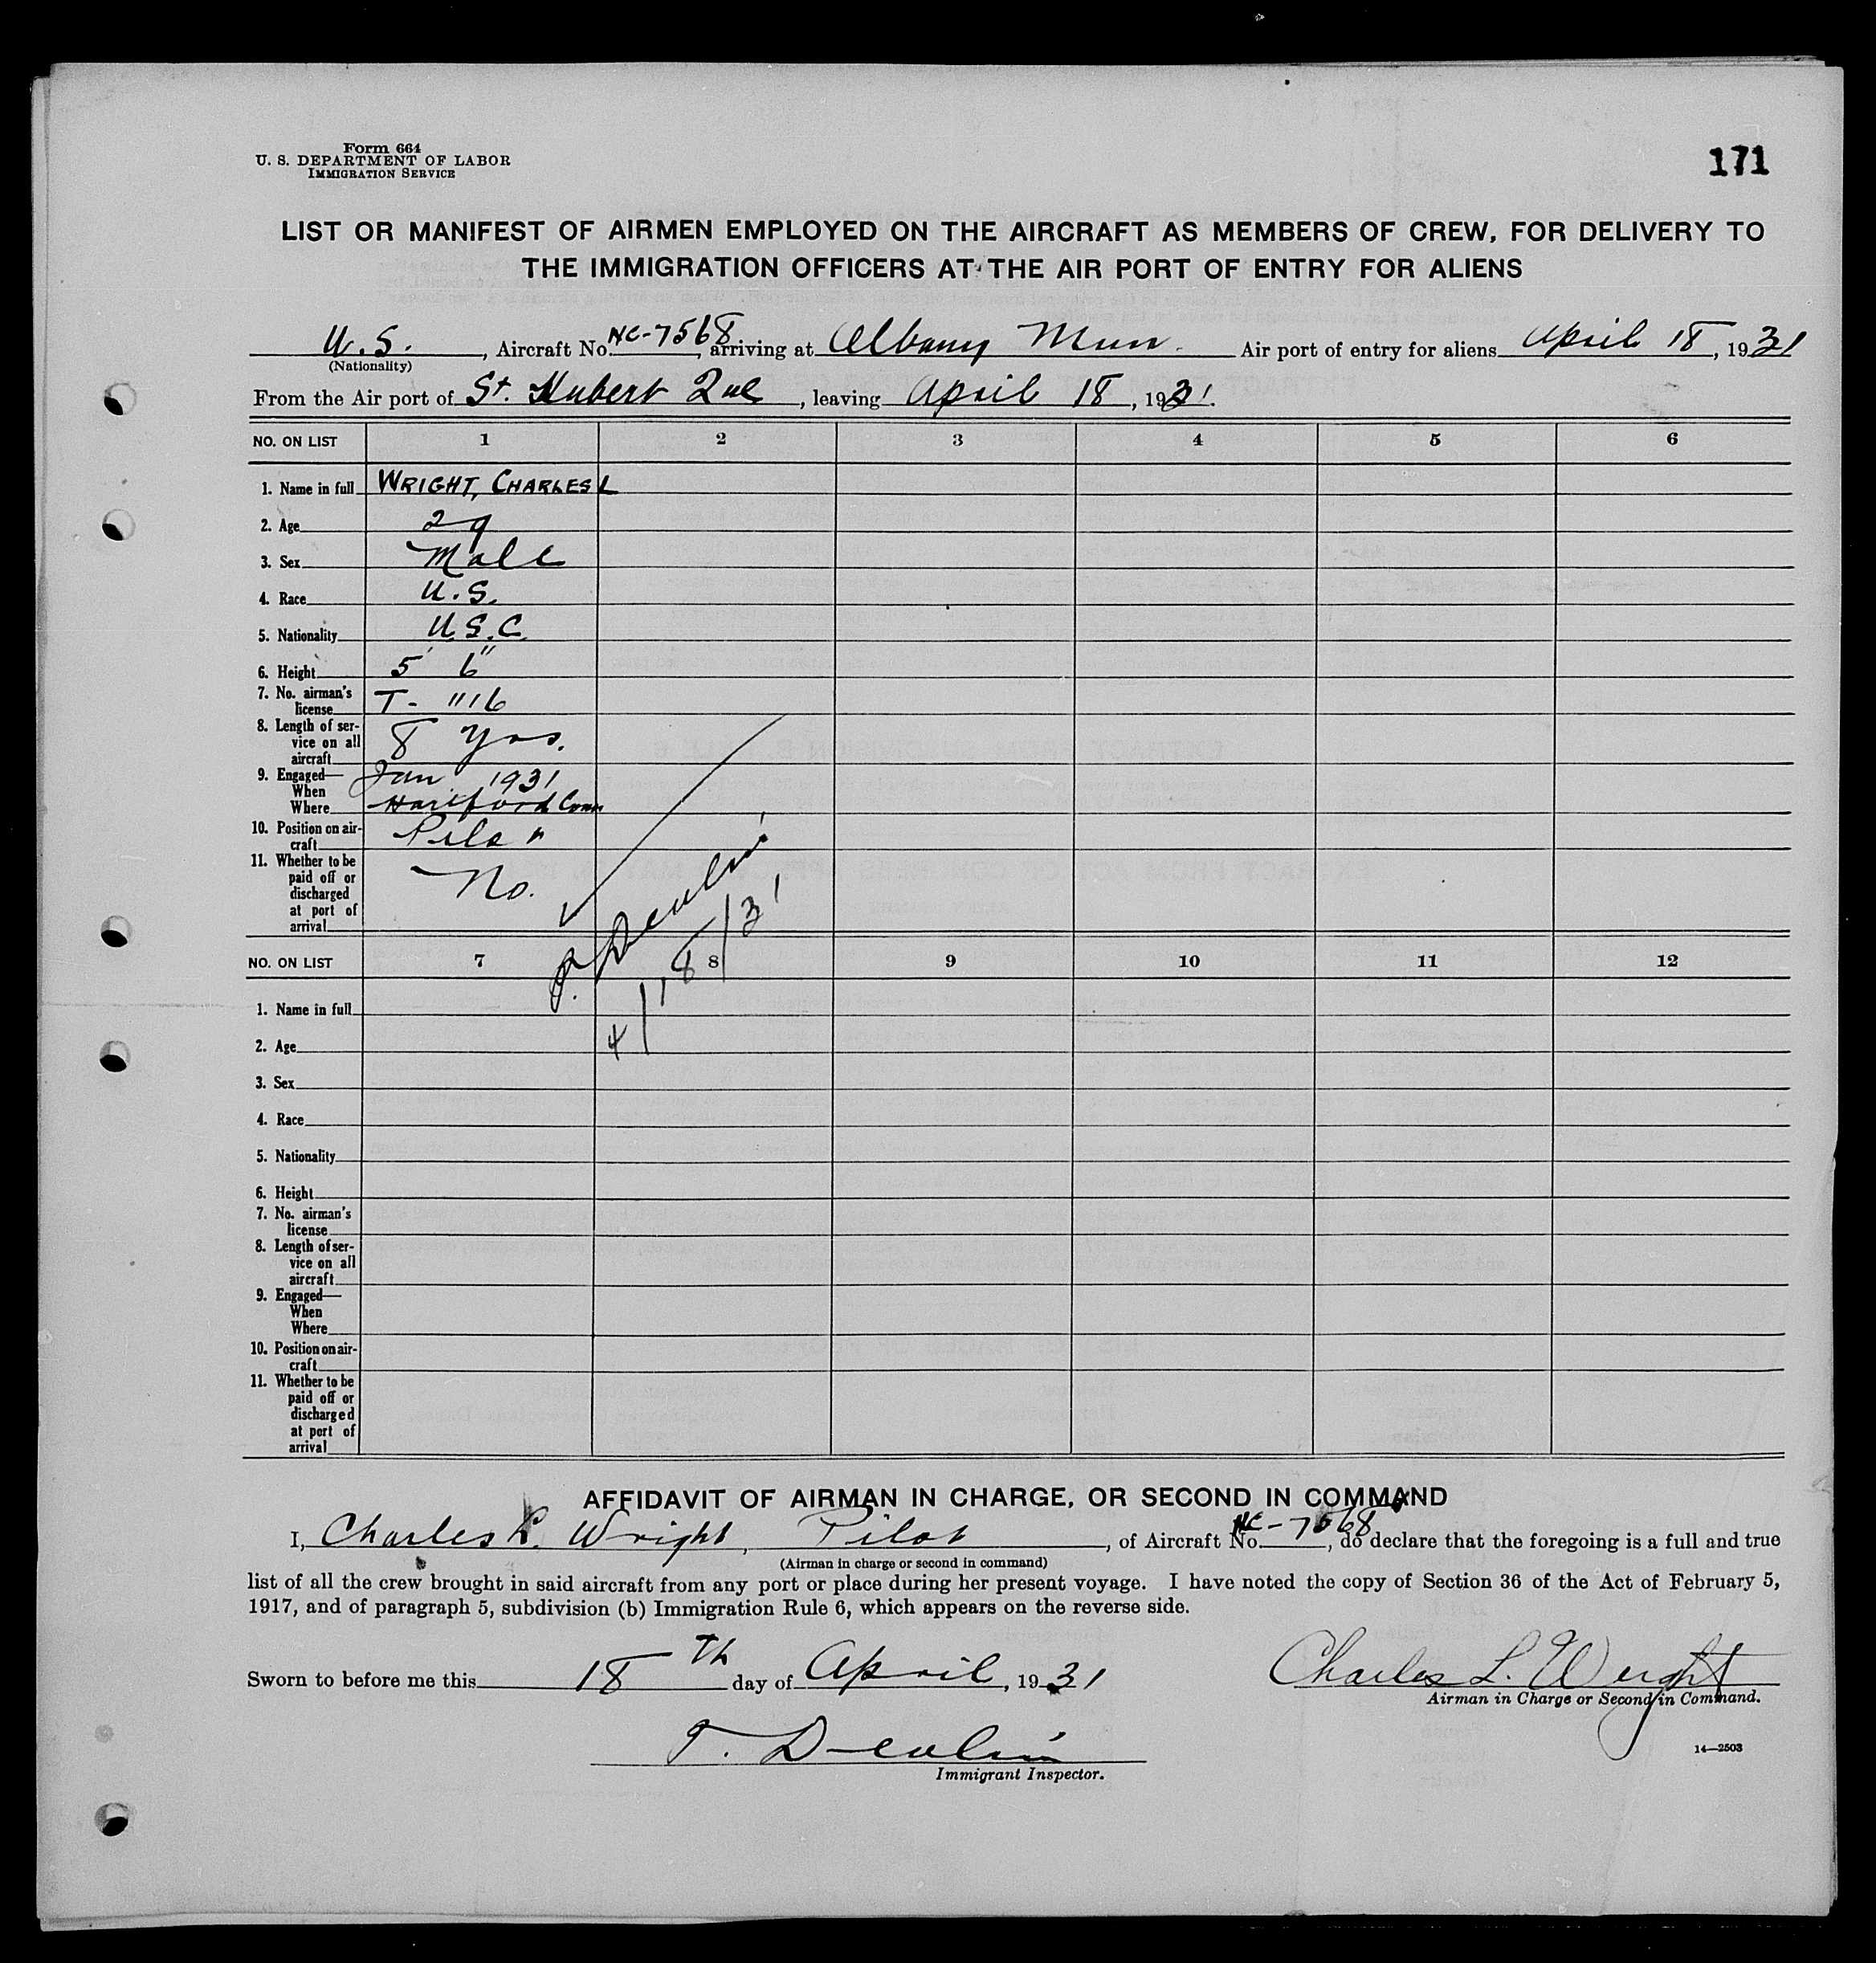 Form 664
U. S. DEPARTMENT OF LABOR
IMMIGRATION SERVICE
171
LIST OR MANIFEST OF AIRMEN EMPLOYED ON THE AIRCRAFT AS MEMBERS OF CREW, FOR DELIVERY TO
THE IMMIGRATION OFFICERS AT THE AIR PORT OF ENTRY FOR ALIENS
U.S., Aircraft No. NC-7568, arriving at Albany Mun. Air port of entry for aliens April 18, 1931
(Nationality)
From the Air port of St. Hubert Que, leaving April 18, 1931.
NO. ON LIST 1 2 3 4 5 6
1. Name in full WRIGHT, CHARLES L
2. Age 29
3. Sex Male
4. Race U.S.
5. Nationality U.S.C.
6. Height 5' 6"
7. No. airman's
license T- 1116
8. Length of ser-
vice on all
aircraft 8 yrs.
9. Engaged—
When Jan 1931
Where Hartford Conn
10. Position on air-
craft Pilot
11. Whether to be
paid off or
discharged
at port of
arrival No.
Devlin
4/18/31
NO. ON LIST 7 8 9 10 11 12
1. Name in full
2. Age
3. Sex
4. Race
5. Nationality
6. Height
7. No. airman's
license
8. Length of ser-
vice on all
aircraft
9. Engaged—
When
Where
10. Position on air-
craft
11. Whether to be
paid off or
discharged
at port of
arrival
AFFIDAVIT OF AIRMAN IN CHARGE, OR SECOND IN COMMAND
I, Charles L. Wright, Pilot, of Aircraft No. NC-7568, do declare that the foregoing is a full and true
(Airman in charge or second in command)
list of all the crew brought in said aircraft from any port or place during her present voyage. I have noted the copy of Section 36 of the Act of February 5,
1917, and of paragraph 5, subdivision (b) Immigration Rule 6, which appears on the reverse side.
Sworn to before me this 18th day of April, 1931
Charles L. Wright
Airman in Charge or Second in Command.
T. Devlin
Immigrant Inspector.
14—2503